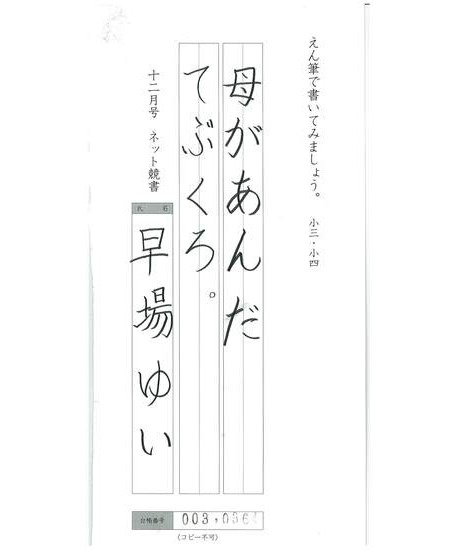 えん筆で書いてみましょう。 小三・小四
母があんだ
てぶくろ。
十二月号 ネット競書
氏 名
早場ゆい
合格番号
(コピー不可)